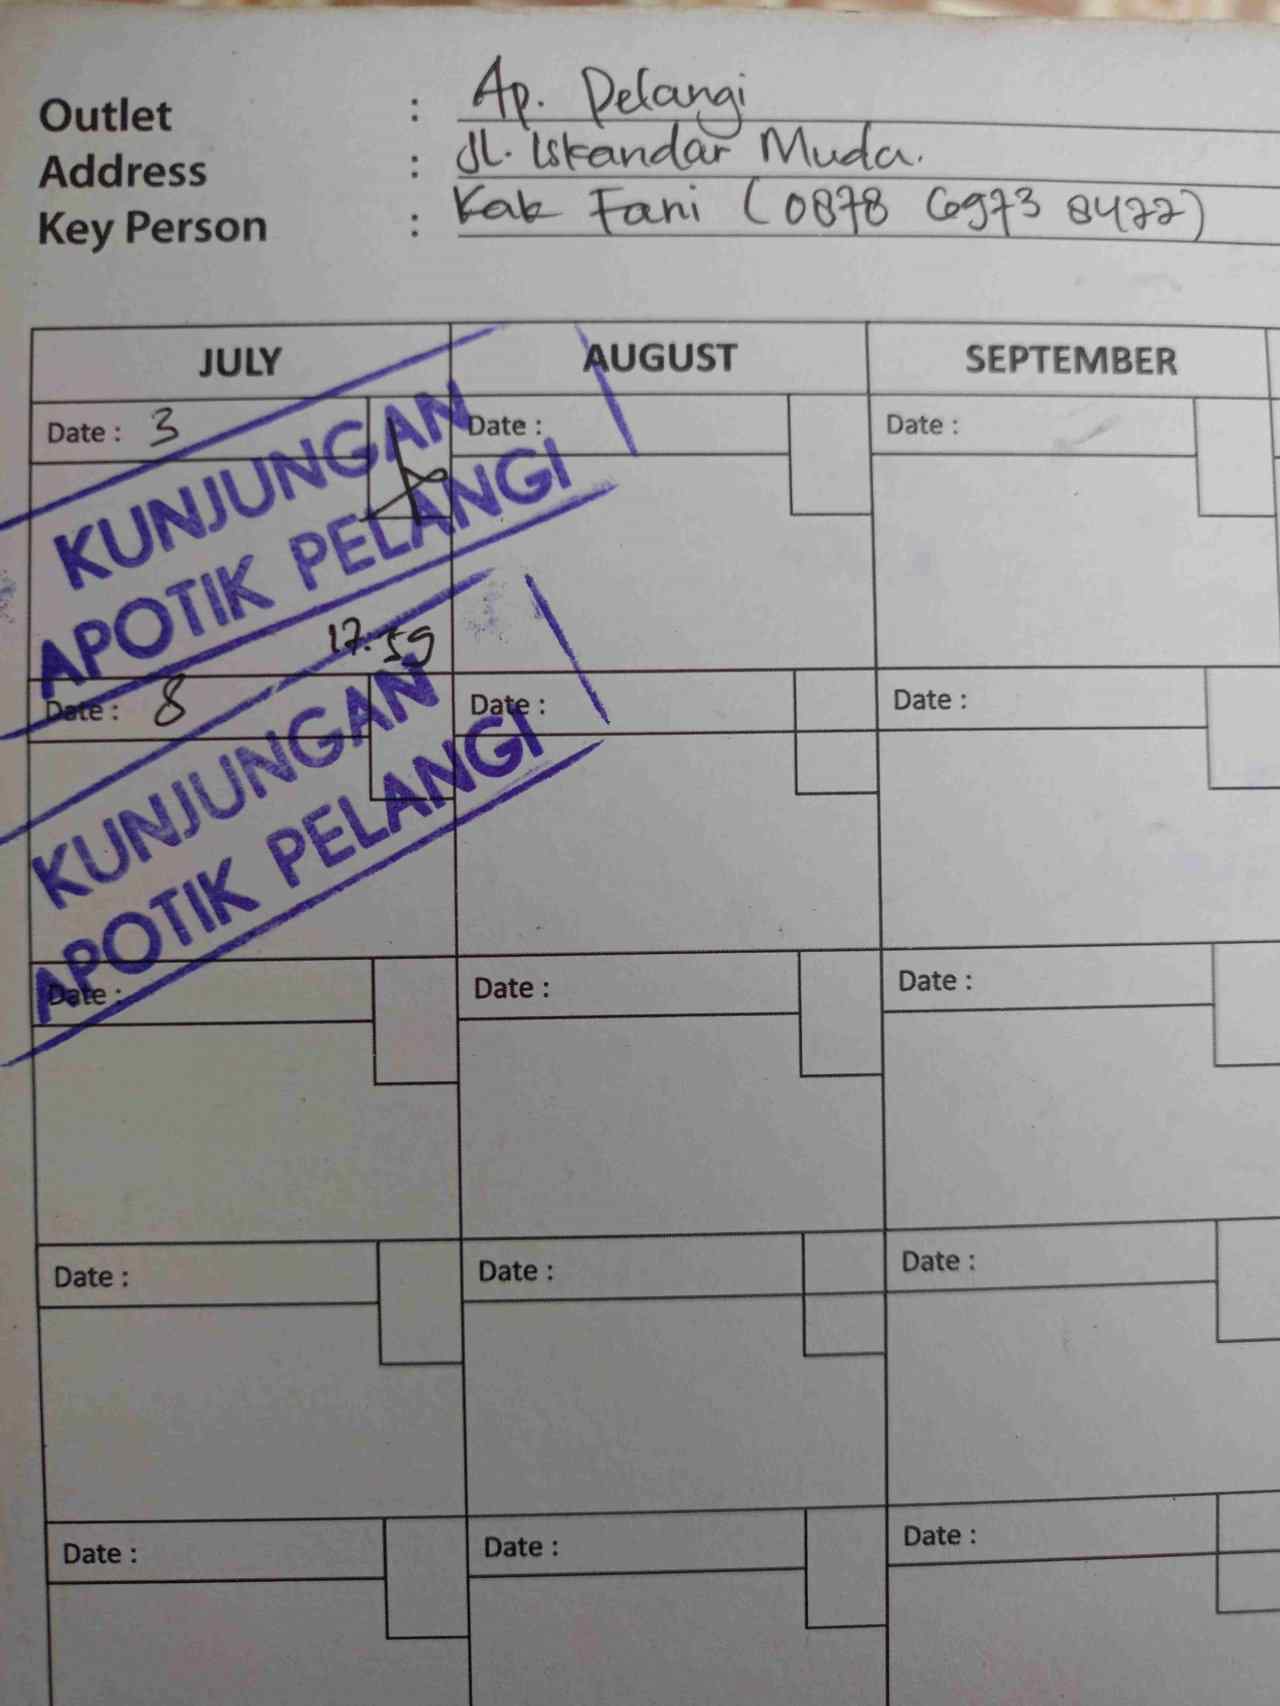 Outlet : Ap. Pelangi
Address : Jl. Iskandar Muda.
Key Person : Kak Fani (0878 6973 8477)
JULY AUGUST SEPTEMBER
Date : 3 Date : Date :
KUNJUNGAN
APOTIK PELANGI
17.59
Date : 8 Date : Date :
KUNJUNGAN
APOTIK PELANGI
Date : Date : Date :
Date : Date : Date :
Date : Date : Date :